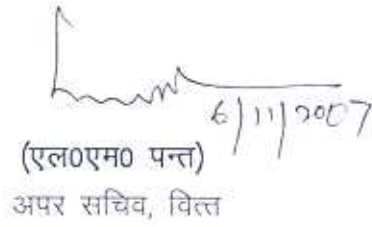 6/11/2007
(एल0एम0 पन्त)
अपर सचिव, वित्त